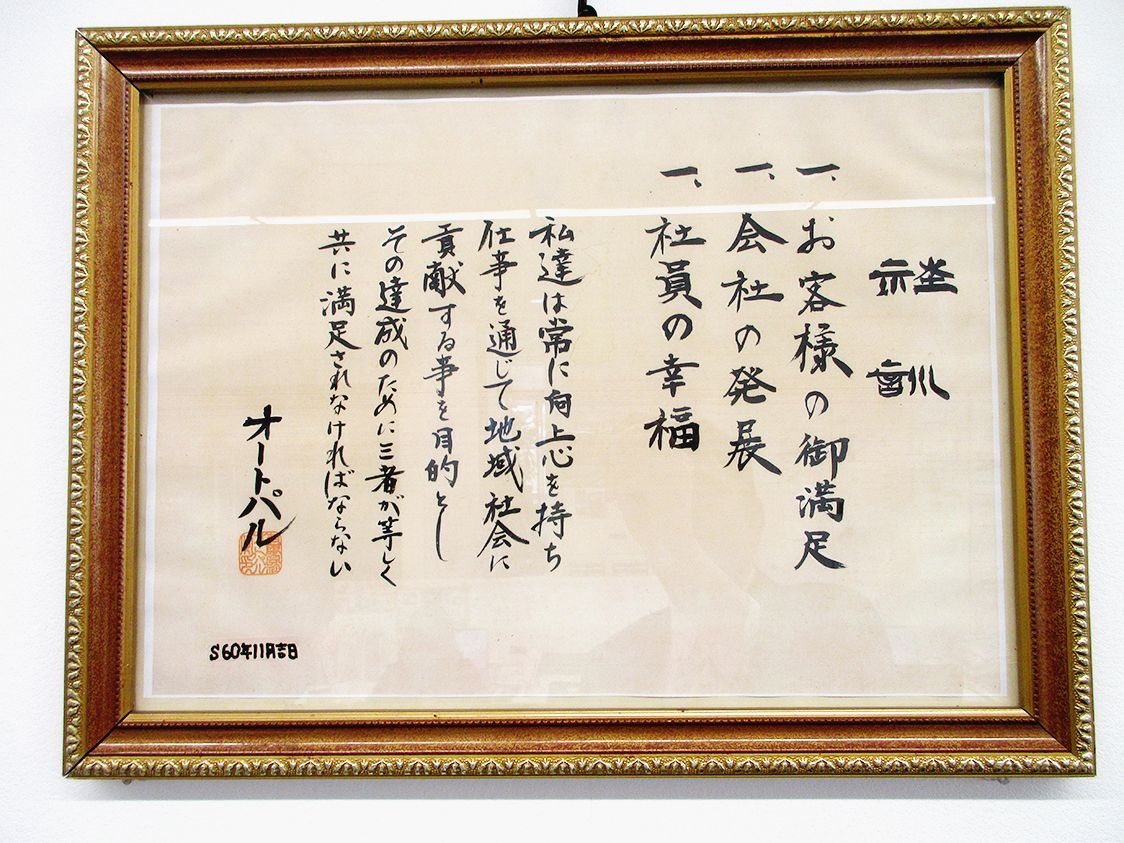 社訓
一、お客様の御満足
一、会社の発展
一、社員の幸福
私達は常に向上心を持ち
仕事を通じて地域社会に
貢献する事を目的とし
その達成のために三者が等しく
共に満足されなければならない
オートパル
S60年11月吉日